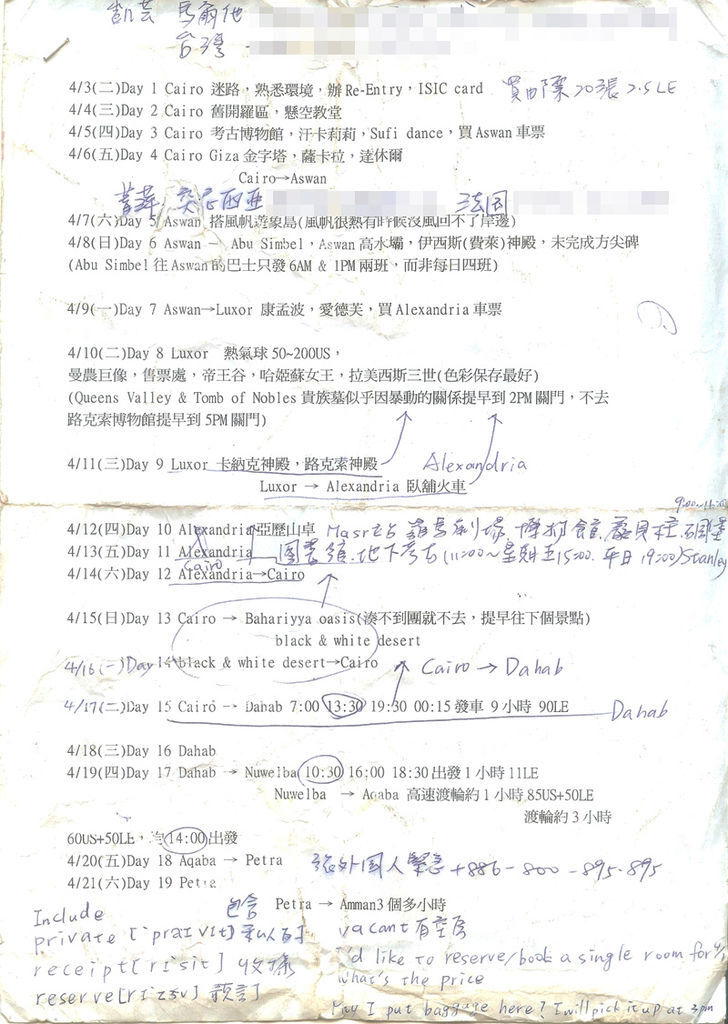 凱芸 馬爾他
台灣
4/3(二)Day 1 Cairo 迷路，熟悉環境，辦Re-Entry，ISIC card 買郵票20張 2.5LE
4/4(三)Day 2 Cairo 舊開羅區，懸空教堂
4/5(四)Day 3 Cairo 考古博物館，汗卡莉莉，Sufi dance，買Aswan車票
4/6(五)Day 4 Cairo Giza金字塔，薩卡拉，達休爾
Cairo→Aswan
突尼西亞 法国
4/7(六)Day 5 Aswan 搭風帆遊象島(風帆很熱有時候沒風回不了岸邊)
4/8(日)Day 6 Aswan – Abu Simbel，Aswan高水壩，伊西斯(費萊)神殿，未完成方尖碑
(Abu Simbel往Aswan的巴士只發6AM & 1PM兩班，而非每日四班)
4/9(一)Day 7 Aswan→Luxor 康孟波，愛德芙，買Alexandria車票
4/10(二)Day 8 Luxor 熱氣球50~200US，
曼農巨像，售票處，帝王谷，哈姬蘇女王，拉美西斯三世(色彩保存最好)
(Queens Valley & Tomb of Nobles貴族墓似乎因暴動的關係提早到2PM關門，不去
路克索博物館提早到5PM關門)
4/11(三)Day 9 Luxor 卡納克神殿，路克索神殿 Alexandria
Luxor → Alexandria 臥舖火車
4/12(四)Day 10 Alexandria 亞歷山卓 Masr站 羅馬劇場.博物館.龐貝柱.碉堡
4/13(五)Day 11 Alexandria 圖書館.地下考古(11:00~星期五15:00.平日19:00)Stanley
Cairo
4/14(六)Day 12 Alexandria→Cairo
4/15(日)Day 13 Cairo → Bahariyya oasis(湊不到團就不去，提早往下個景點)
black & white desert
4/16(一)Day 14 black & white desert→Cairo Cairo → Dahab
4/17(二)Day 15 Cairo → Dahab 7:00 13:30 19:30 00:15發車 9小時 90LE Dahab
4/18(三)Day 16 Dahab
4/19(四)Day 17 Dahab → Nuweiba 10:30 16:00 18:30出發1小時11LE
Nuweiba → Aqaba 高速渡輪約1小時85US+50LE
渡輪約3小時
60US+50LE， 14:00出發
4/20(五)Day 18 Aqaba → Petra 外国人緊急 +886-800-895-895
4/21(六)Day 19 Petra
Petra → Amman3個多小時
Include 包含
private [ˋpraɪvɪt] 私人的 vacant 有空房
receipt[rɪsit] 收據 I'd like to reserve/book a single room for
reserve[rɪzɜv] 預訂 what's the price
May I put baggage here? I will pick it up at 3pm